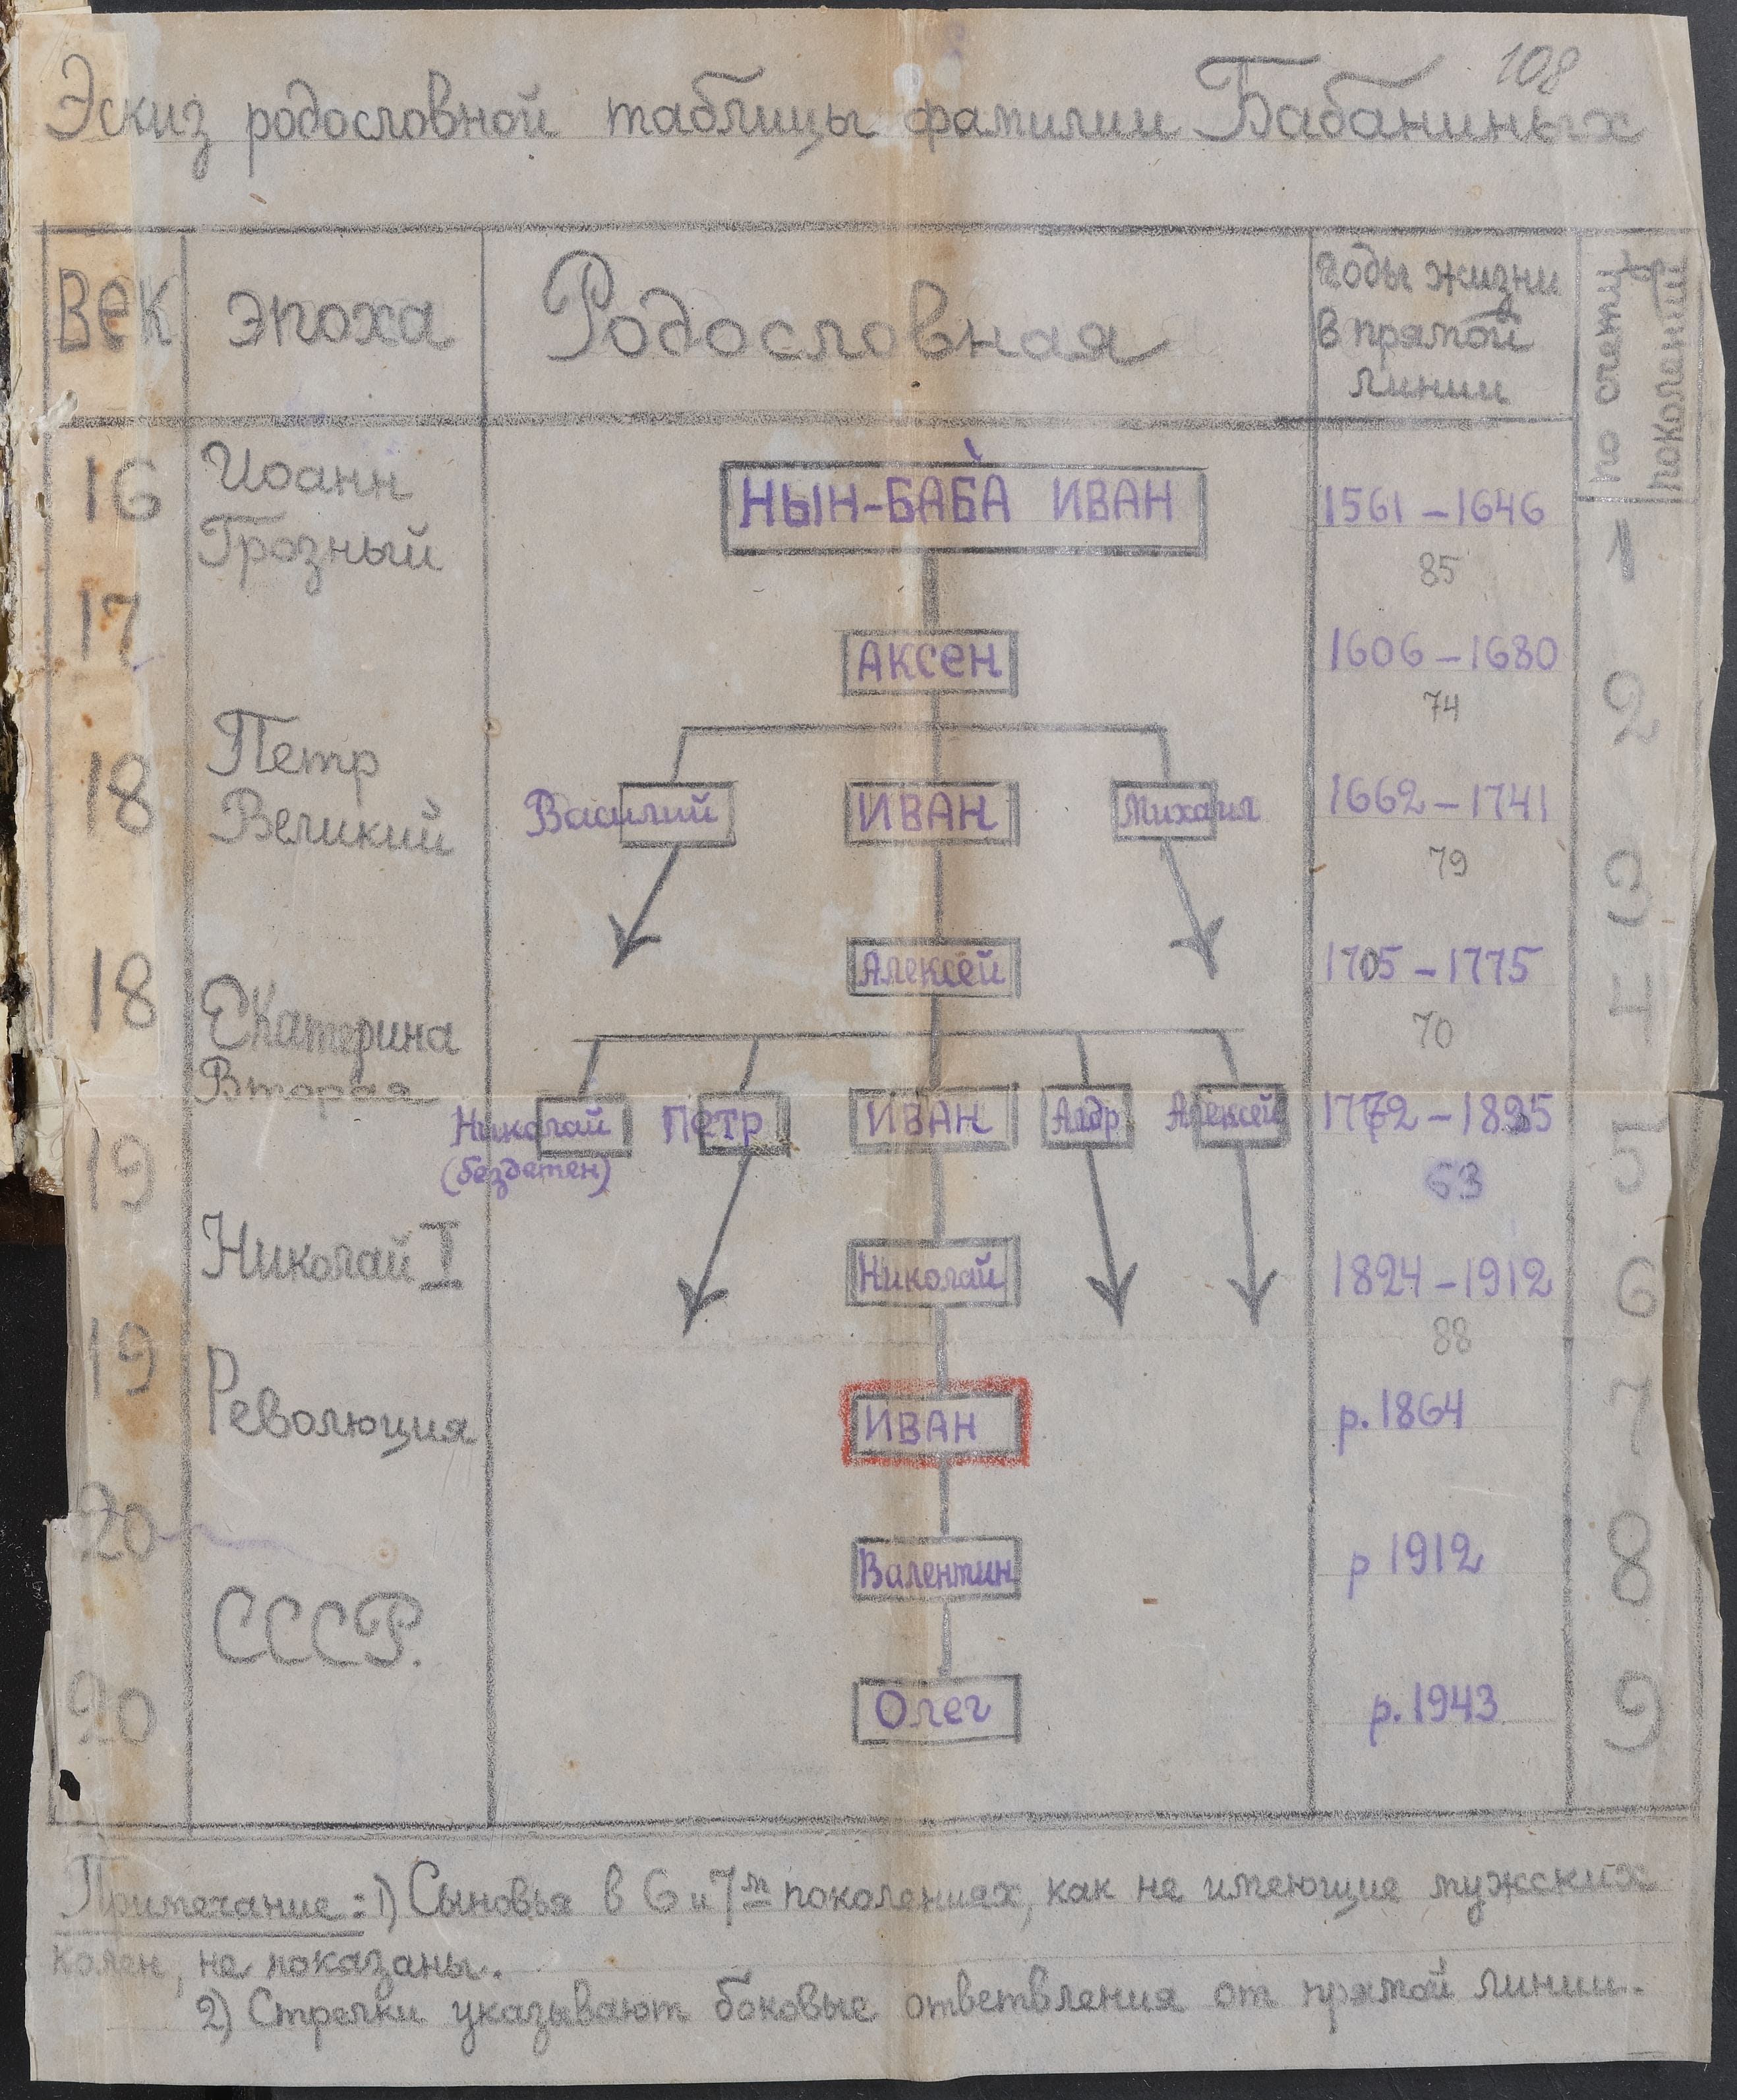 108
Эскиз родословной таблицы фамилии Бабаниных
Век Эпоха Родословная Годы жизни
в прямой
линии
по счету
поколений
16 Иоанн
Грозный
НЫН-БАБА ИВАН 1561 – 1646
85
1
17
Аксен 1606 – 1680
74
2
18 Петр
Великий
Василий ИВАН Михаил 1662 – 1741
79
3
18
Алексей 1705 – 1775
70
4
Екатерина
Вторая
Николай Петр ИВАН Алдр Алексей
(бездетен)
63
5
19
Николай I
Николай 1824 – 1912
88
6
19
Революция
ИВАН р. 1864
7
20
Валентин р 1912
8
СССР.
20
Олег р. 1943
9
Примечание: 1) Сыновья в 6 и 7м поколениях, как не имеющие мужских
колен, не показаны.
2) Стрелки указывают боковые ответвления от прямой линии.